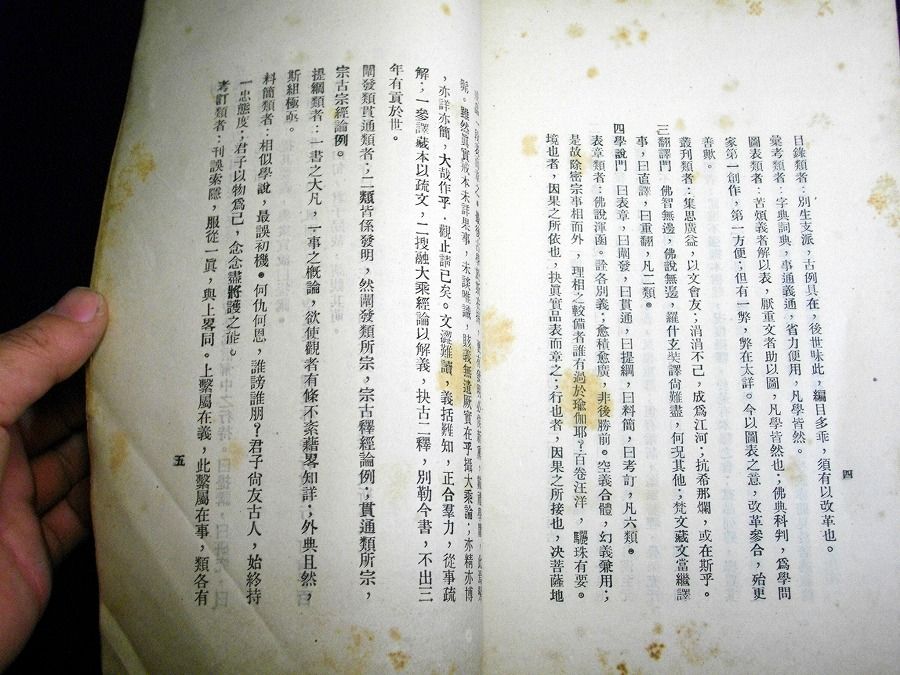 目錄類者：別生支派，古例具在，後世昧此，編目多乖，須有以改革也。
彙考類者：字典詞典，事通義通，省力便用，凡學皆然。
圖表類者：苦煩義者解以表，厭重文者助以圖，凡學皆然也；佛典科判，爲學問
家第一創作，第一方便；但有一弊，弊在太詳。今以圖表之意，改革參合，殆更
善歟。
叢刊類者：集思廣益，以文會友；涓涓不已，成爲江河；抗希那爛，或在斯乎。
三翻譯門　佛智無邊，佛說無邊，羅什玄奘譯尙難盡，何況其他；梵文藏文當繼譯
事，曰直譯，曰重翻，凡二類。
四學說門　曰表章，曰闡發，曰貫通，曰提綱，曰料簡，曰考訂，凡六類。
表章類者：佛說渾函。詮各別義；愈積愈廣，非後勝前。空義合體，幻義兼用；
是故除密宗事相而外，理相之較備者誰有過於瑜伽耶？百卷汪洋，驪珠有要。
境也者，因果之所依也，抉眞實品表而章之；行也者，因果之所接也，決菩薩地
呢。雖然眞實戒本未詳果事，未談唯識，賅義無遺厥實在乎攝大乘論；亦精亦博
，亦詳亦簡，大哉作乎，觀止請已矣。文澀難讀，義括難知，正合羣力，從事疏
解；一參譯藏本以疏文，二搜融大乘經論以解義，抉古二釋，別勒今書，不出三
年有貢於世。
闡發類貫通類者；二類皆係發明，然闡發類所宗，宗古釋經論例；貫通類所宗，
宗古宗經論例。
提綱類者：一書之大凡，一事之概論，欲使觀者有條不紊藉畧知詳；外典且然，
斯組極亟。
料簡類者：相似學說，最誤初機。何仇何恩，誰謗誰朋？君子尙友古人，始終持
一忠態度；君子以物爲己，念念盡將護之能。
考訂類者：刊誤索隱，服從一眞，與上畧同。上繫屬在義，此繫屬在事，類各有
四
五